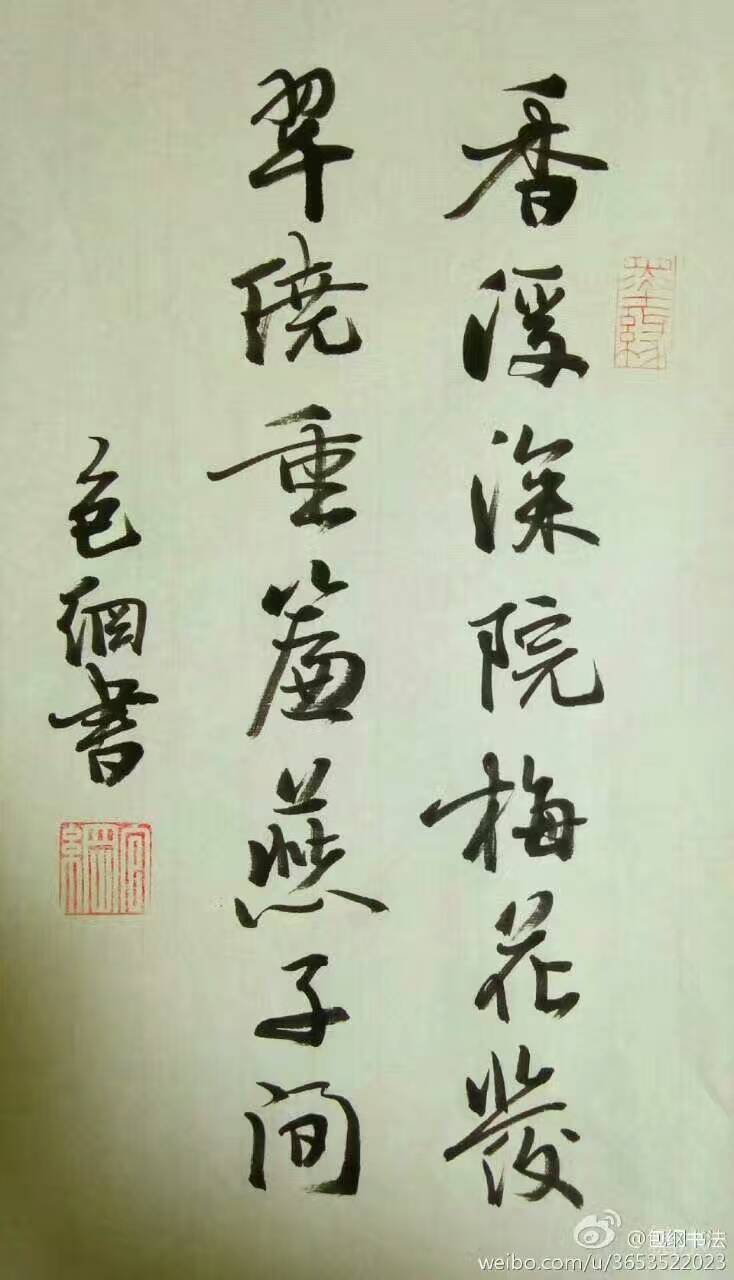 香浮深院梅花發
翠绕重簾燕子间
包綱書
@包纲书法
weibo.com/u/3653522023